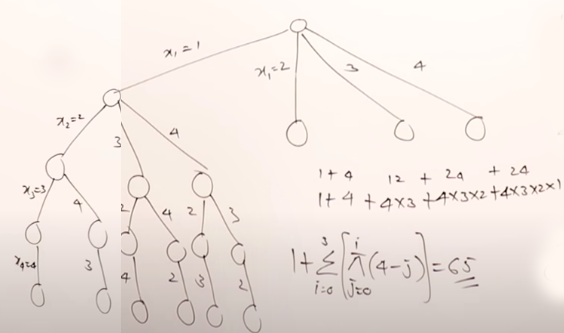 x₁=1
x₁=2
3
4
x₂=2
3
4
x₃=3
4
2
4
2
3
x₄=4
3
4
2
3
2
1+4 12 + 24 + 24
1+4+4×3+4×3×2+4×3×2×1
1+∑³ᵢ₌₀[πⁱⱼ₌₀(4-j)]=65